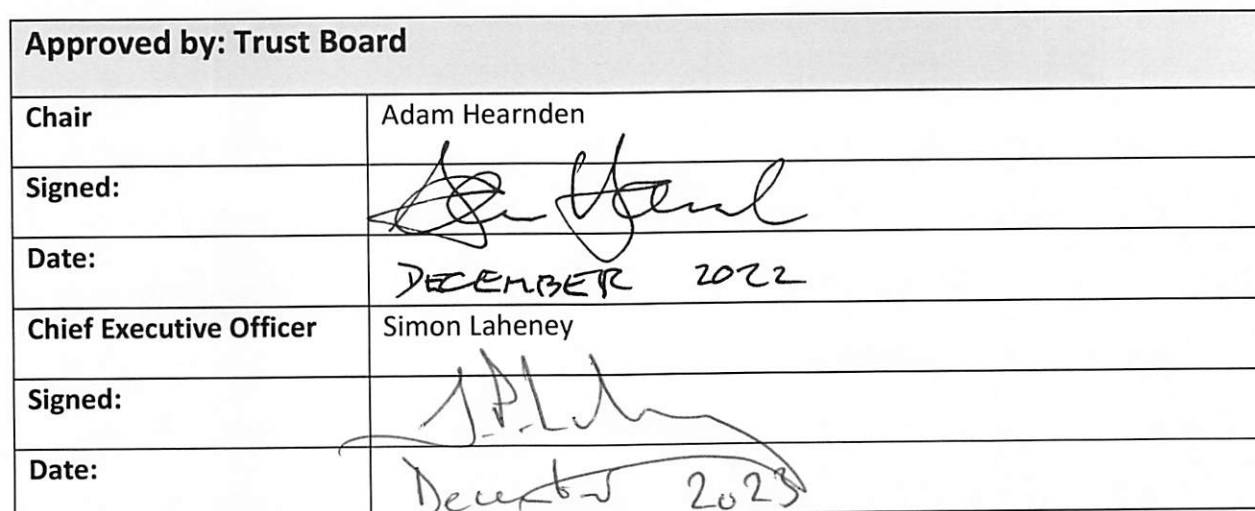 Approved by: Trust Board
Chair Adam Hearnden
Signed:
Date: DECEMBER 2022
Chief Executive Officer Simon Laheney
Signed:
Date: December 2023